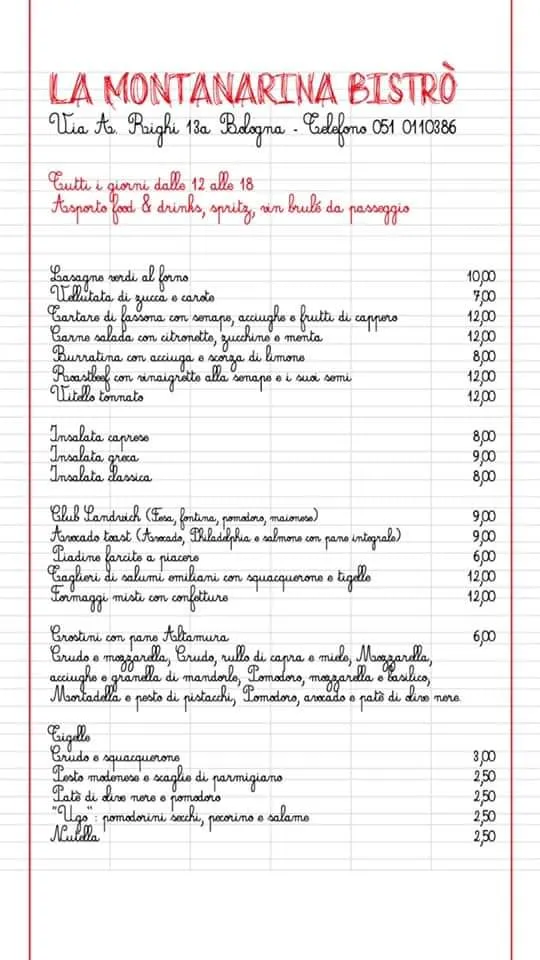 LA MONTANARINA BISTRÒ
Via A. Righi 13a Bologna - Telefono 051 0110386
Tutti i giorni dalle 12 alle 18
Asporto food & drinks, spritz, vin brulé da passeggio
Lasagne verdi al forno 10,00
Vellutata di zucca e carote 7,00
Tartare di fassona con senape, acciughe e frutti di cappero 12,00
Carne salada con citronette, zucchine e menta 12,00
Burratina con acciuga e scorza di limone 8,00
Roastbeef con vinaigrette alla senape e i suoi semi 12,00
Vitello tonnato 12,00
Insalata caprese 8,00
Insalata greca 9,00
Insalata classica 8,00
Club Sandwich (Fesa, fontina, pomodoro, maionese) 9,00
Avocado toast (Avocado, Philadelphia e salmone con pane integrale) 9,00
Piadine farcite a piacere 6,00
Taglieri di salumi emiliani con squacquerone e tigelle 12,00
Formaggi misti con confetture 12,00
Crostini con pane Altamura 6,00
Crudo e mozzarella, Crudo, rullo di capra e miele, Mozzarella,
acciughe e granella di mandorle, Pomodoro, mozzarella e basilico,
Mortadella e pesto di pistacchi, Pomodoro, avocado e patè di olive nere.
Tigelle
Crudo e squacquerone 3,00
Pesto modenese e scaglie di parmigiano 2,50
Patè di olive nere e pomodoro 2,50
"Ugo" : pomodorini secchi, pecorino e salame 2,50
Nutella 2,50